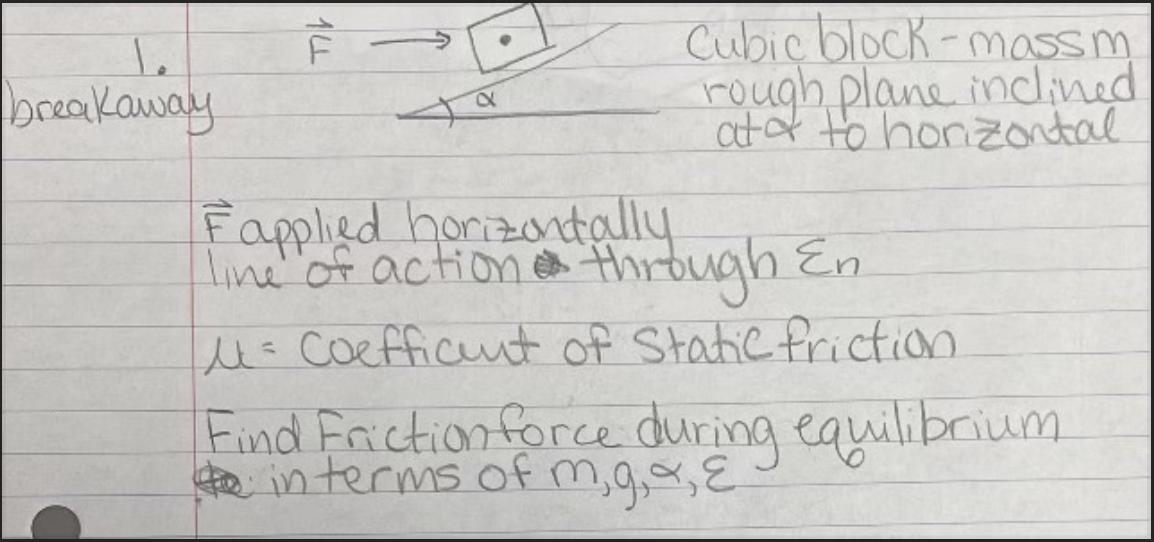 F⃗
Cubic block - mass m
1.
rough plane inclined
breakaway
α
at α to horizontal
F⃗ applied horizontally
line of action through Ɛn
μ = Coefficunt of Static friction
Find Friction force during equilibrium
in terms of m,g,α,Ɛ